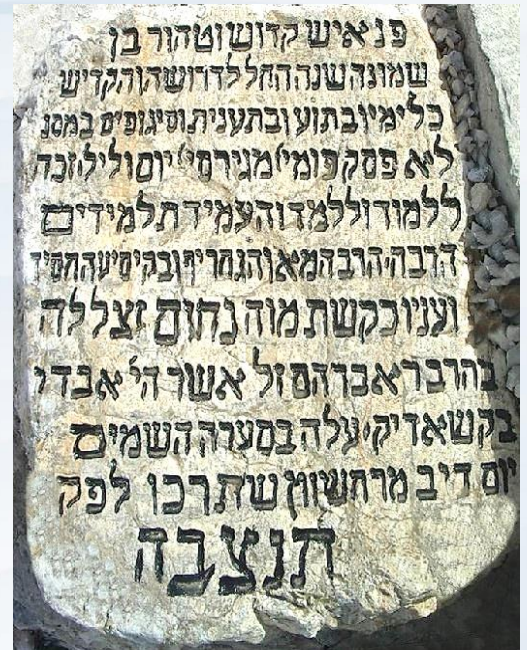 פנ איש קדוש וטהור בן
שמונה שנה החל לדרוש הוקדיש
כל ימיו בתוע ובתענית וסיגופים במסנ
ליא פסק פומי' מגירסי' יום ולילי זכה
ללמוד וללמד והעמיד תלמידים
הרבה הרב המאוהג חריף ובקי סיע החסיד
ועניו כקשת מוה נחום זצללה
בהרבר אברהם זל אשר הי' אבדי
בק שאדיק עלה בסערה השמים
יום דיב מרחשון שתרכו לפק
תנצבה